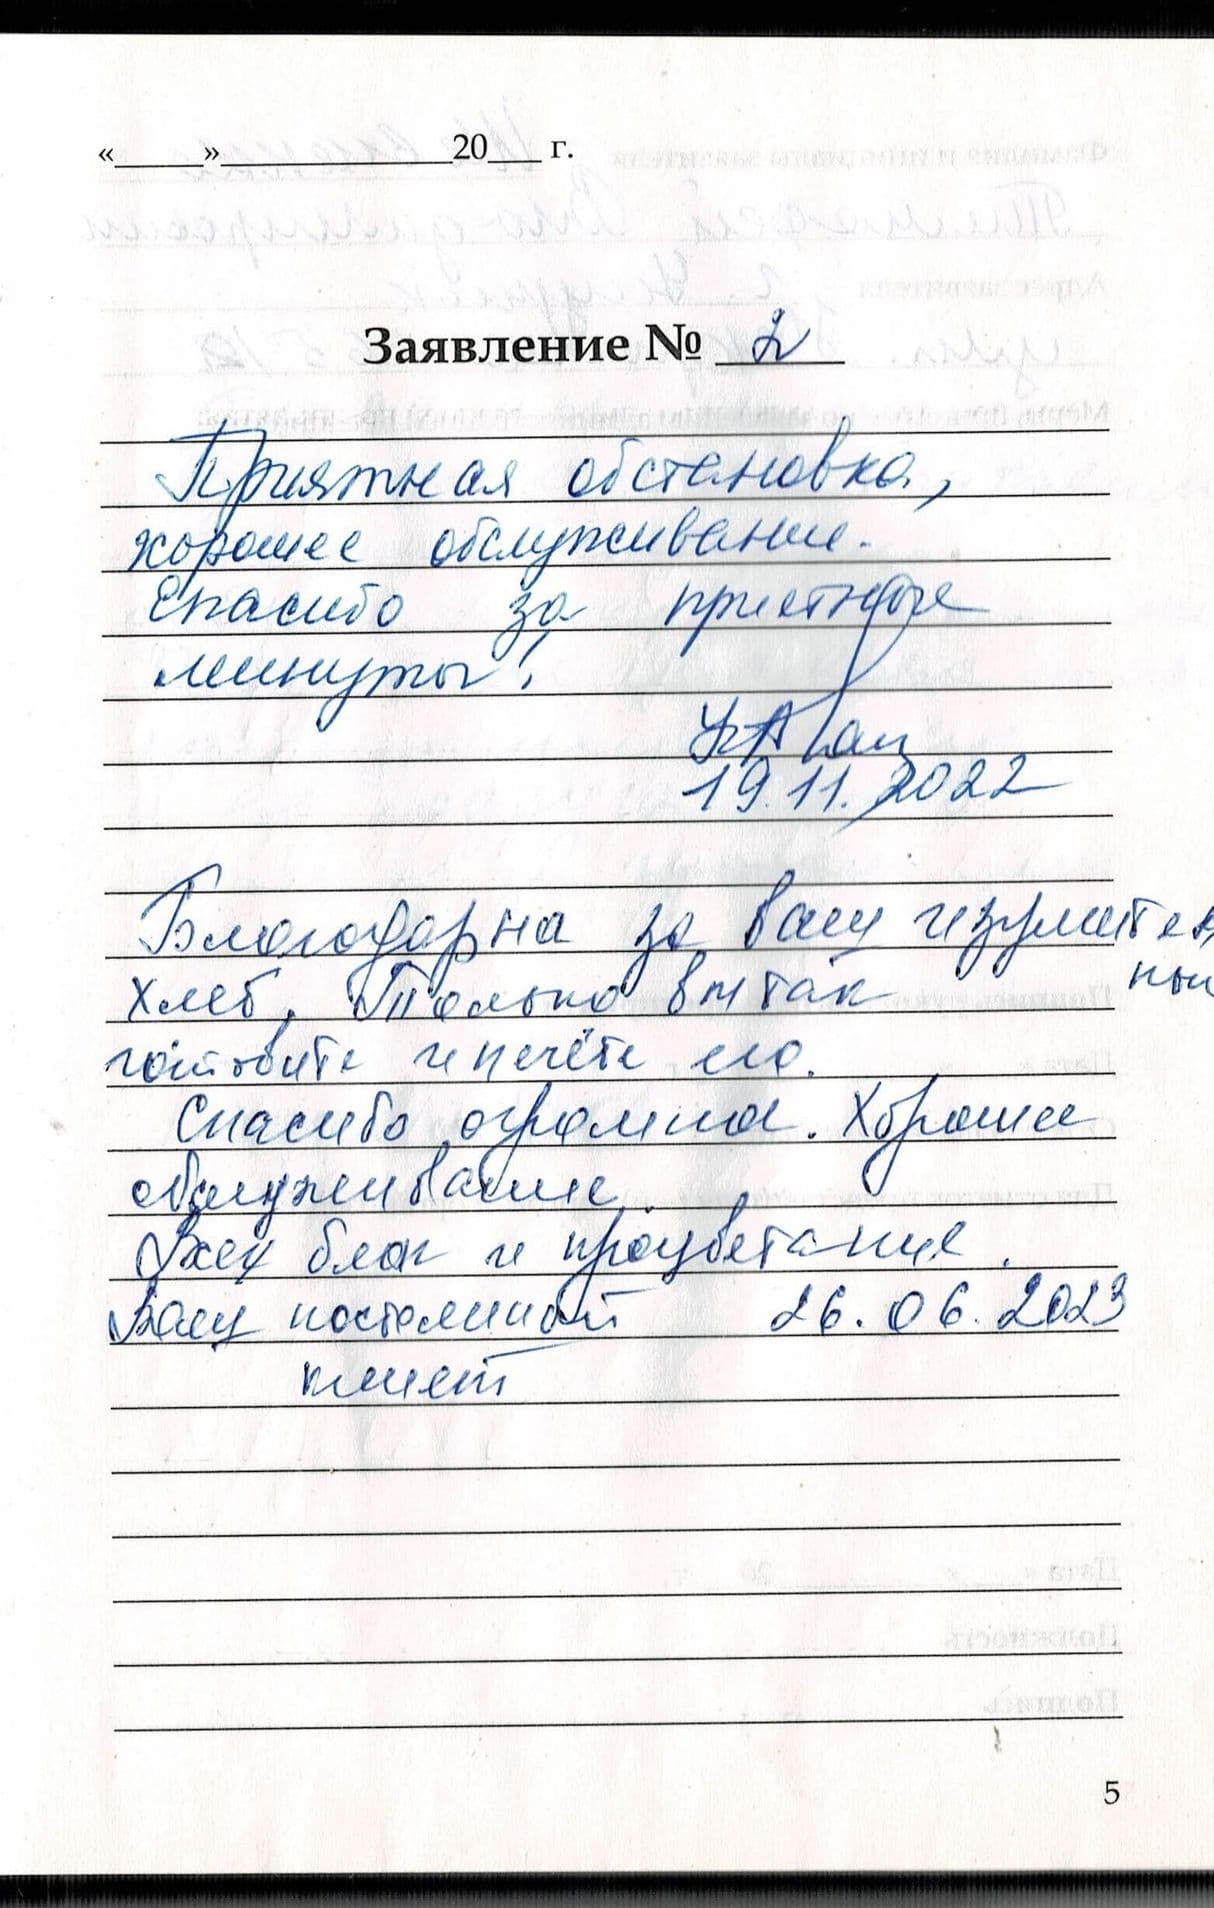 «_____»_____________20___ г.
Заявление № 2
Приятная обстановка,
хорошее обслуживание.
Спасибо за приятные
минуты!
19.11.2022
Благодарна за ваш изумитель
ный
хлеб. Только вы так
готовите и печёте его.
Спасибо огромное. Хорошее
обслуживание.
Всех благ и процветание.
Ваш постоянный 26.06.2023
клиент
5